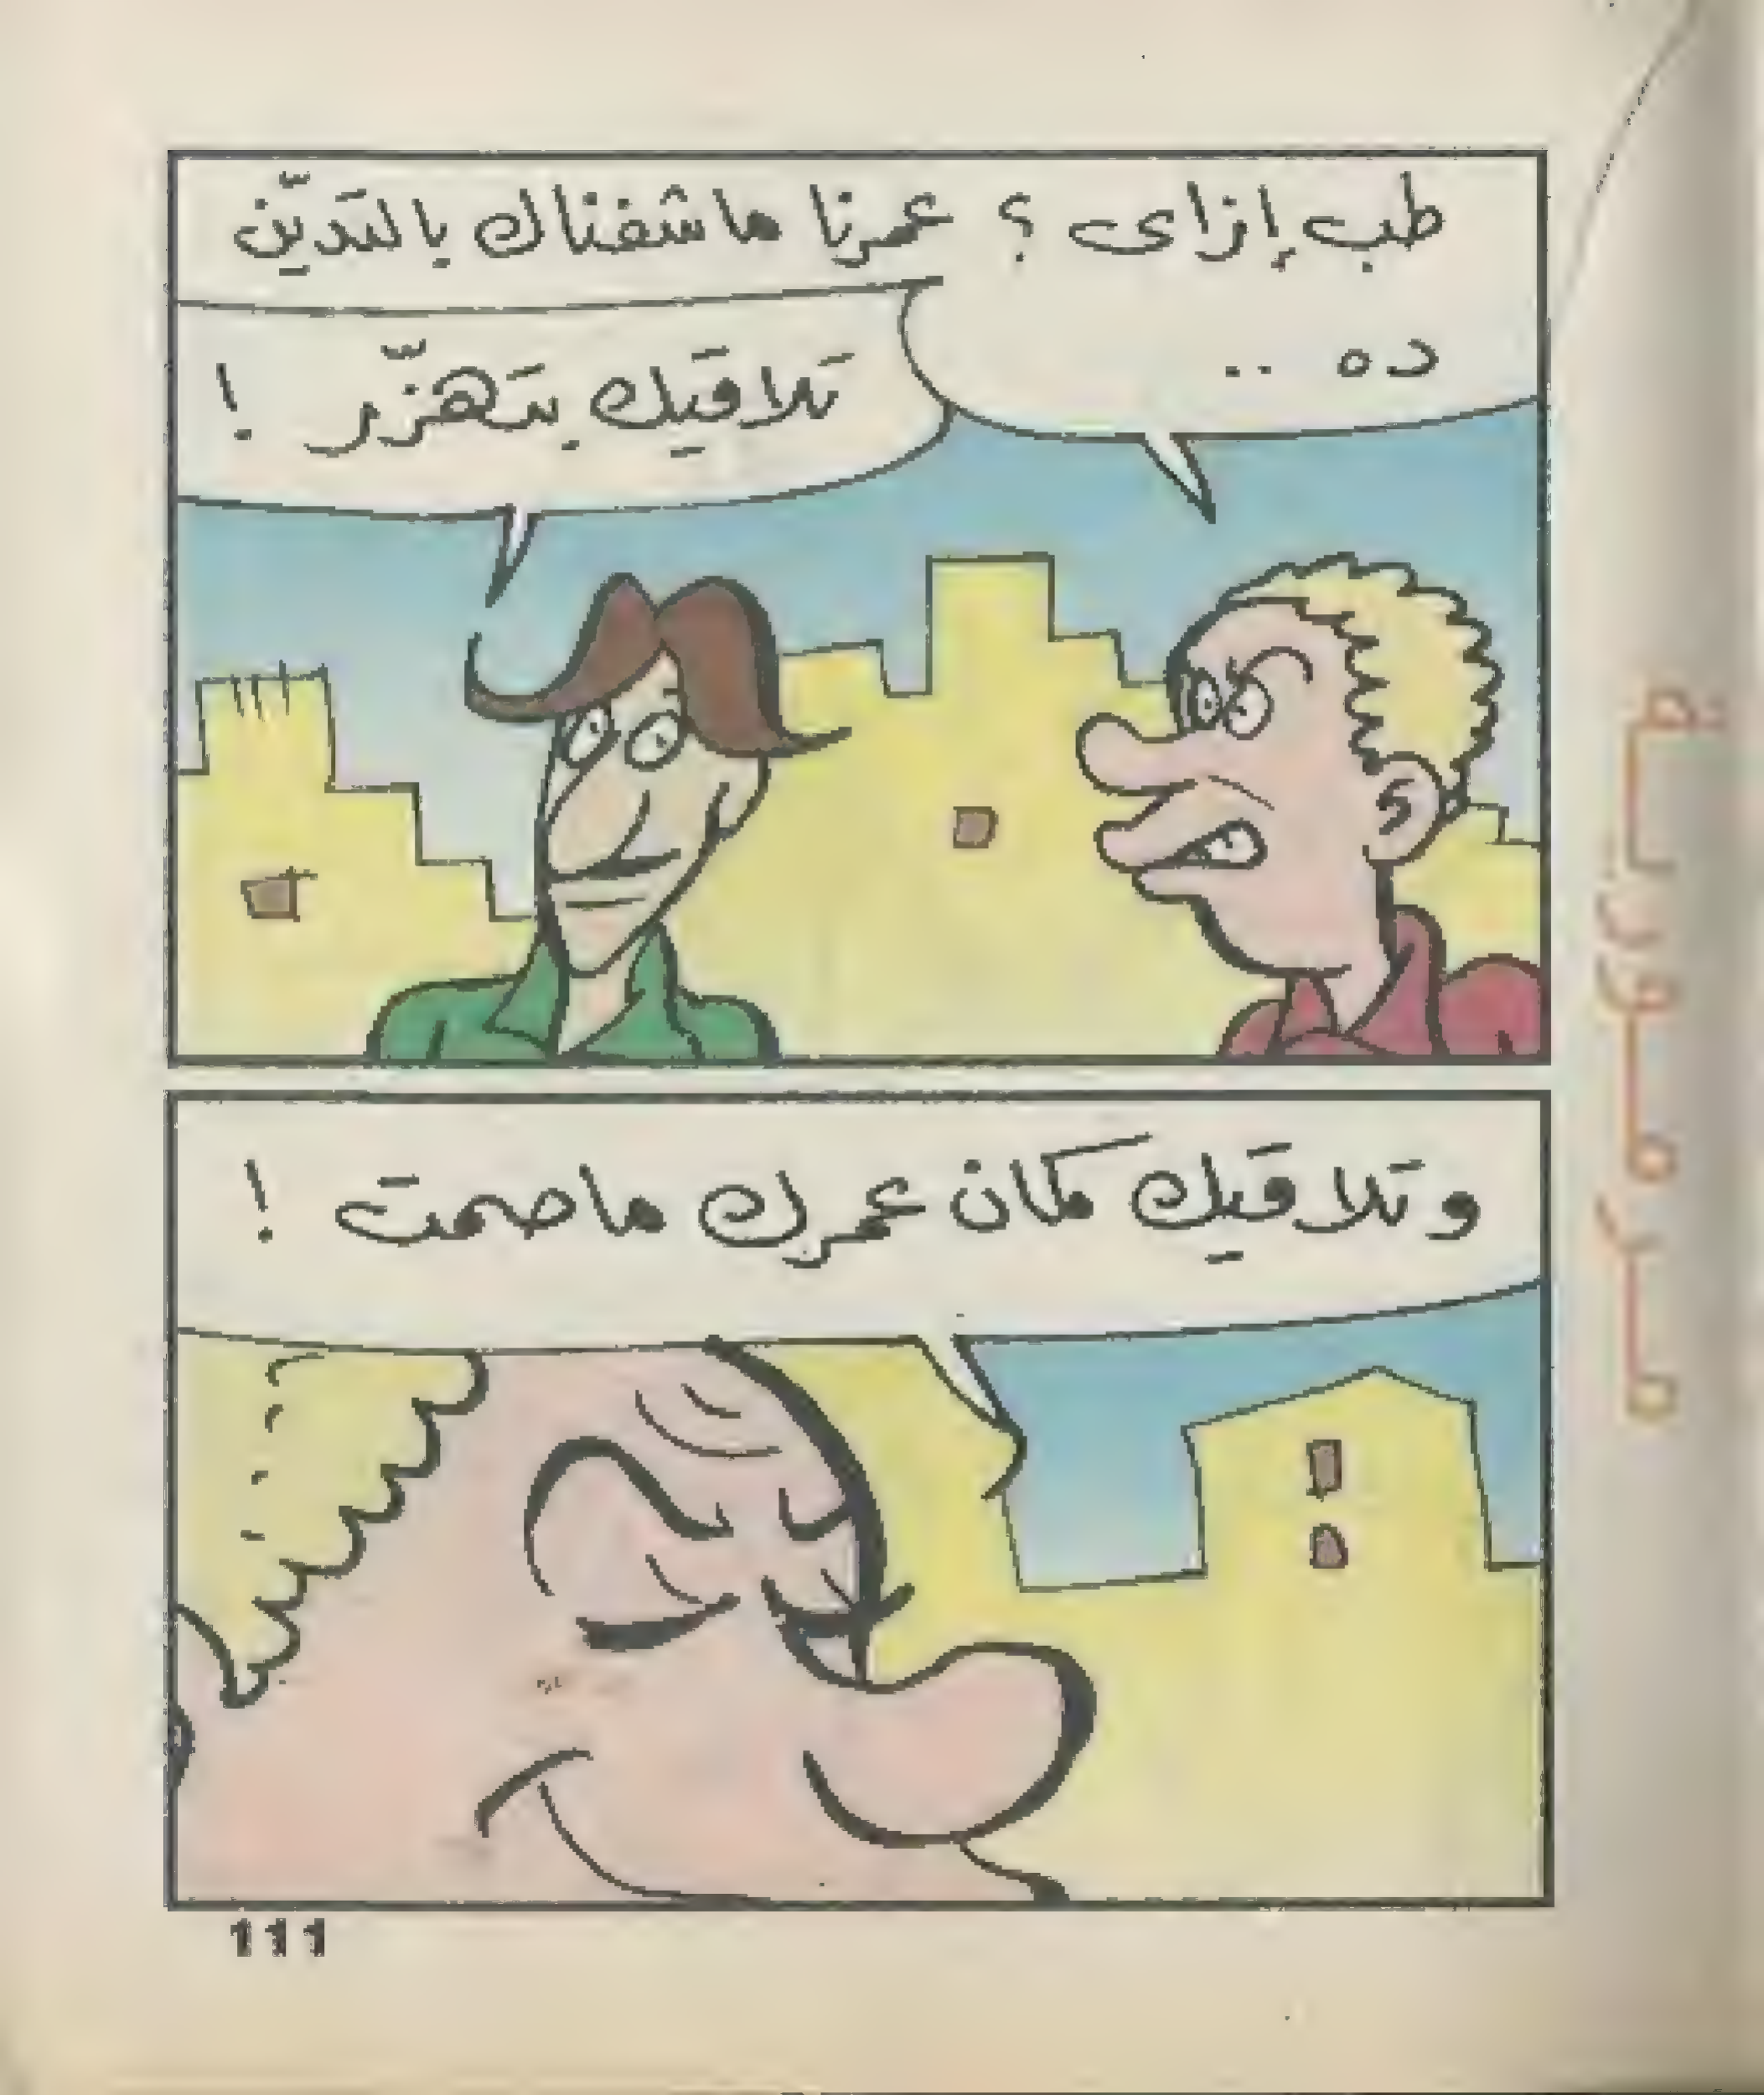 طب إزاى ؟ عمرنا ما شفناك بالتديّن
ده ..
تَلاقيك بتَهزّر !
وتَلاقيك كمان عمرك ما صمت !
مرمورية
111